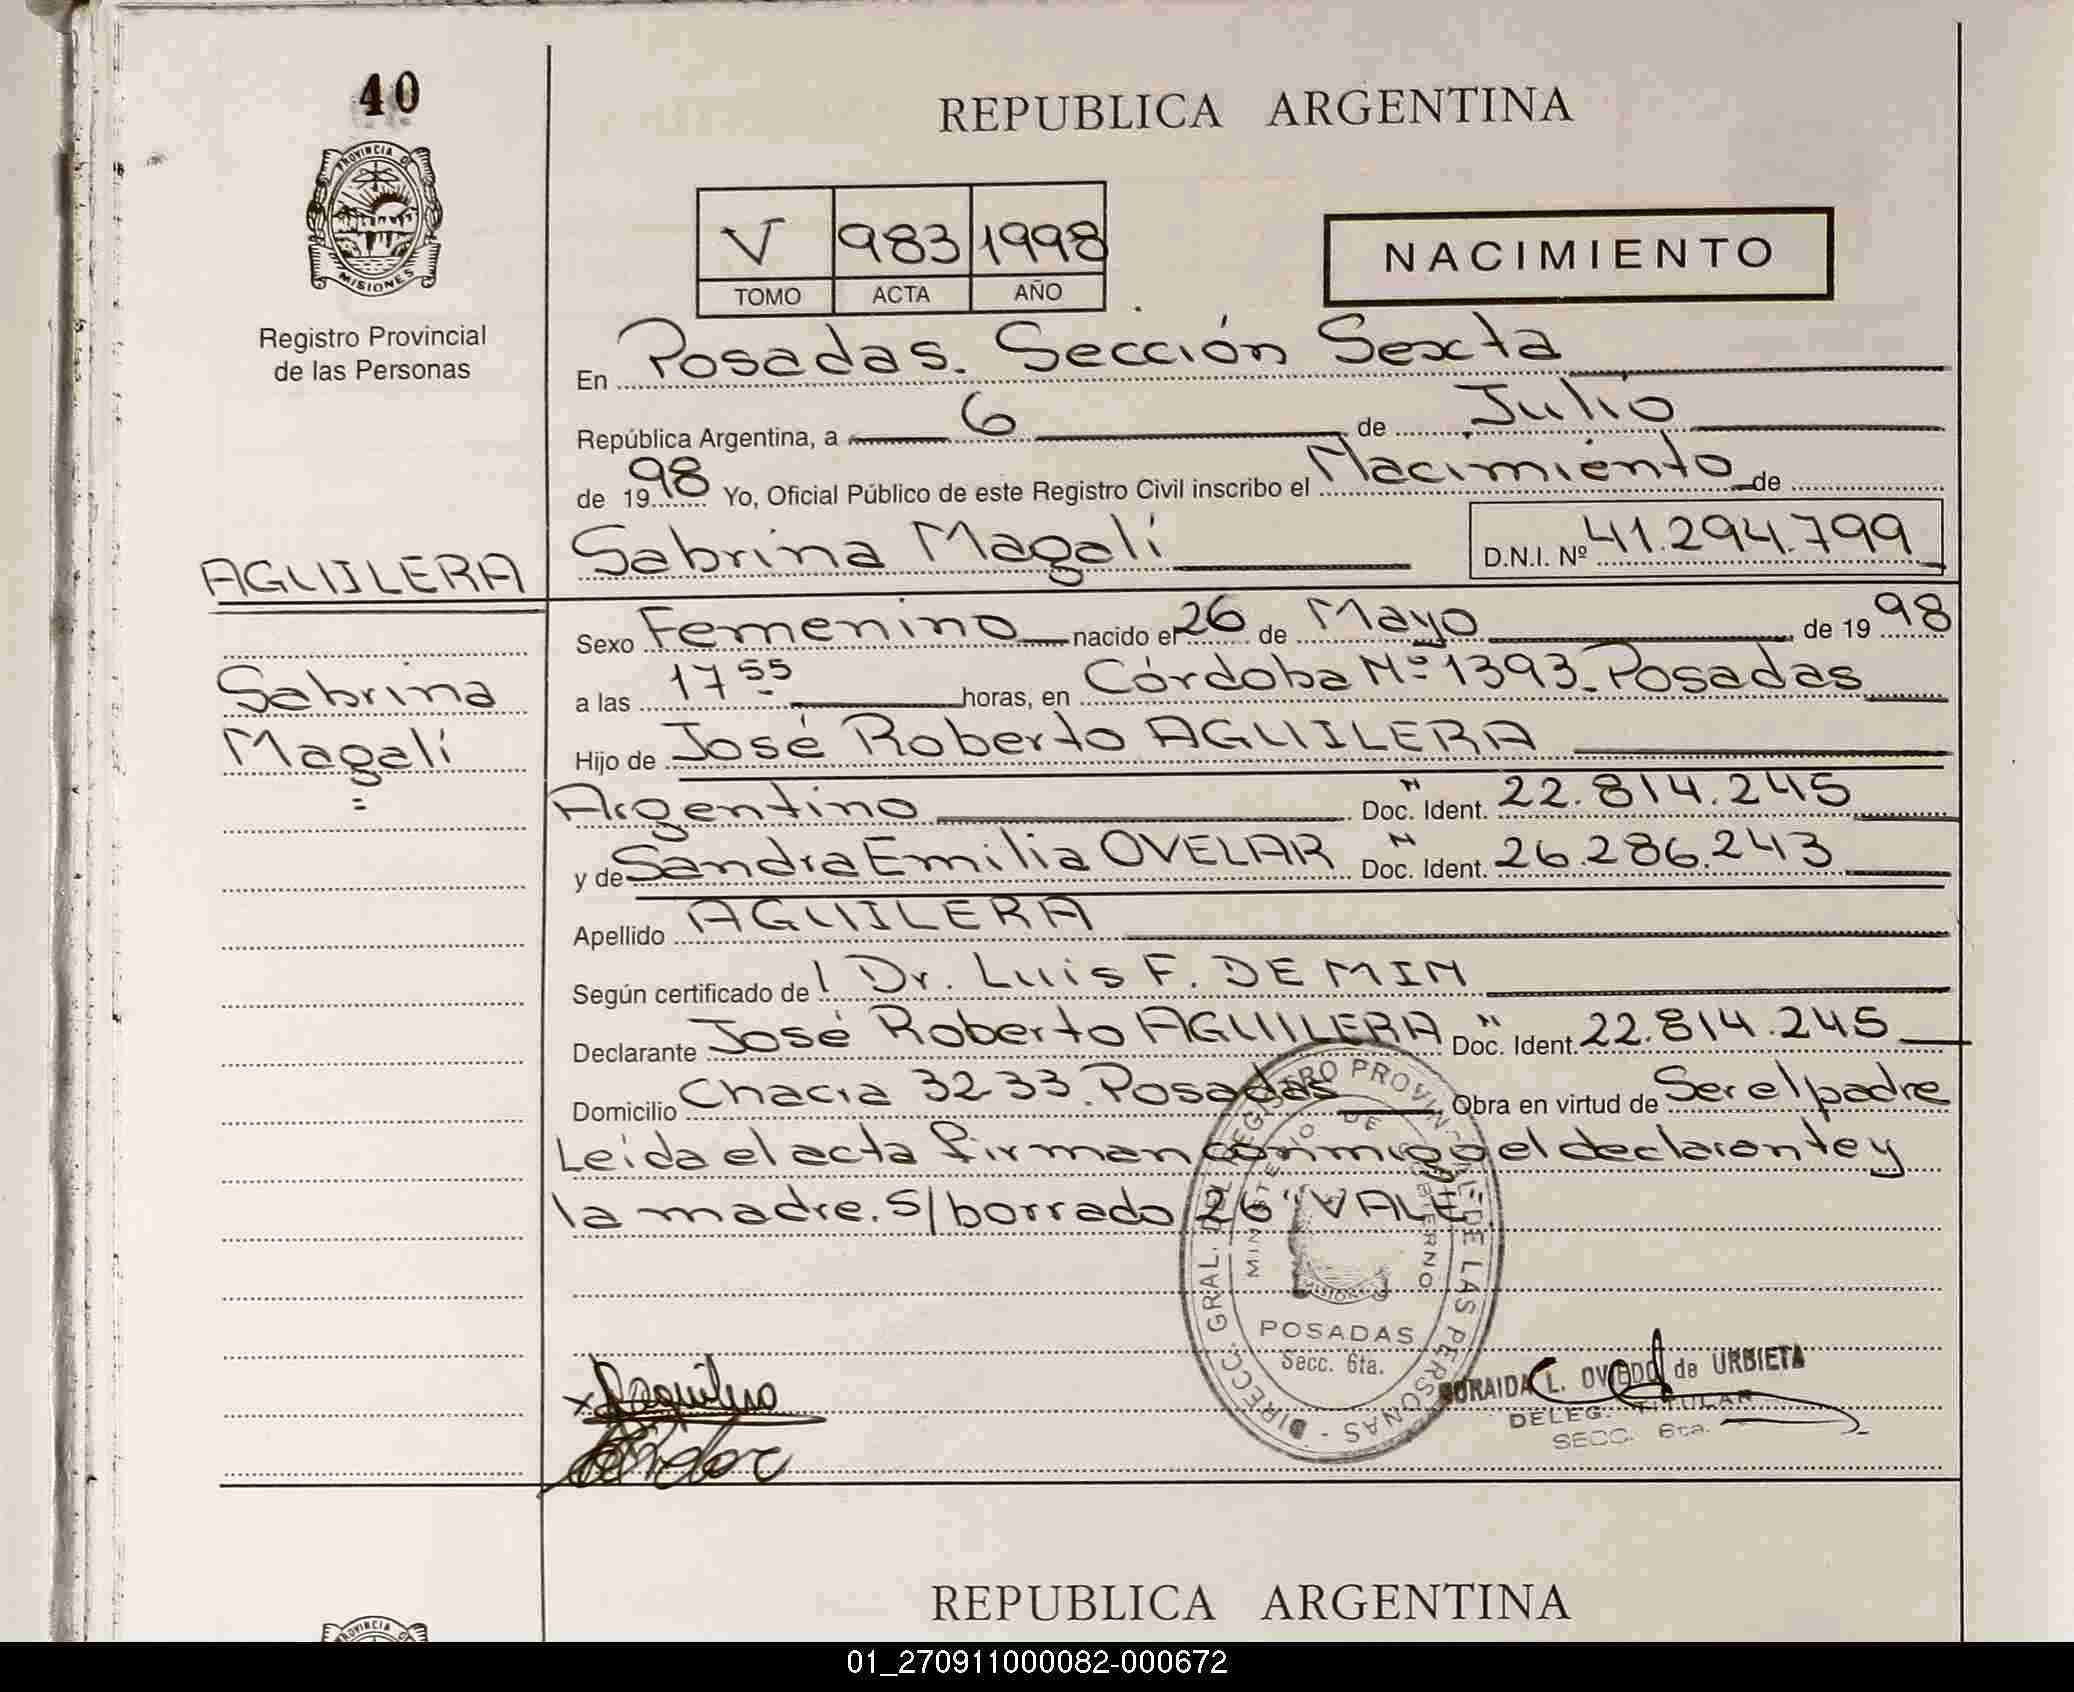 40
PROVINCIA DE
MISIONES
Registro Provincial
de las Personas
REPUBLICA ARGENTINA
V 983 1998
TOMO ACTA AÑO
NACIMIENTO
En Posadas. Sección Sexta
República Argentina, a 6 de Julio
de 1998 Yo, Oficial Público de este Registro Civil inscribo el Nacimiento de
AGUILERA Sabrina Magalí D.N.I. Nº 41.294.799
Sabrina
Magalí
=
Sexo Femenino nacido el 26 de Mayo de 1998
a las 17 55 horas, en Córdoba Nº 1393. Posadas
Hijo de José Roberto AGUILERA
Argentino Doc. Ident. N 22.814.245
y de Sandra Emilia OVELAR Doc. Ident. N 26.286.243
Apellido AGUILERA
Según certificado de l Dr. Luis F. DE MIN
Declarante José Roberto AGUILERA Doc. Ident. N 22.814.245
Domicilio Chacra 32-33. Posadas Obra en virtud de Ser el padre
Leída el acta firman conmigo el declarante y
la madre. S/borrado "26" VALE
DIRECC. GRAL. DEL REGISTRO PROVINCIAL DE LAS PERSONAS
MINISTERIO DE GOBIERNO
MISIONES
POSADAS
Secc. 6ta.
x Aguilera
SORAIDA L. OVIEDO de URBIETA
DELEG. TITULAR
SECC. 6ta.
REPUBLICA ARGENTINA
PROVINCIA
01_270911000082-000672